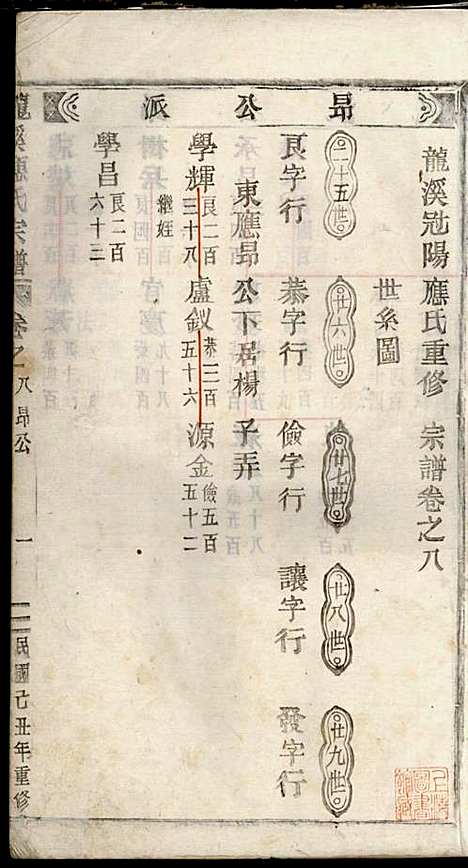 昂公派
龍溪冠陽應氏重修宗譜卷之八
世系圖
二十五世 廿六世 廿七世 廿八世 廿九世
良字行 恭字行 儉字行 讓字行 發字行
東應昂公下居楊子弄
學輝 良二百三十八 繼姪 盧釵 恭三百五十六 源金 儉五百五十二
學昌 良二百六十三
龍溪應氏宗譜 卷之八 昂公 一 民國己丑年重修
上海圖書館藏